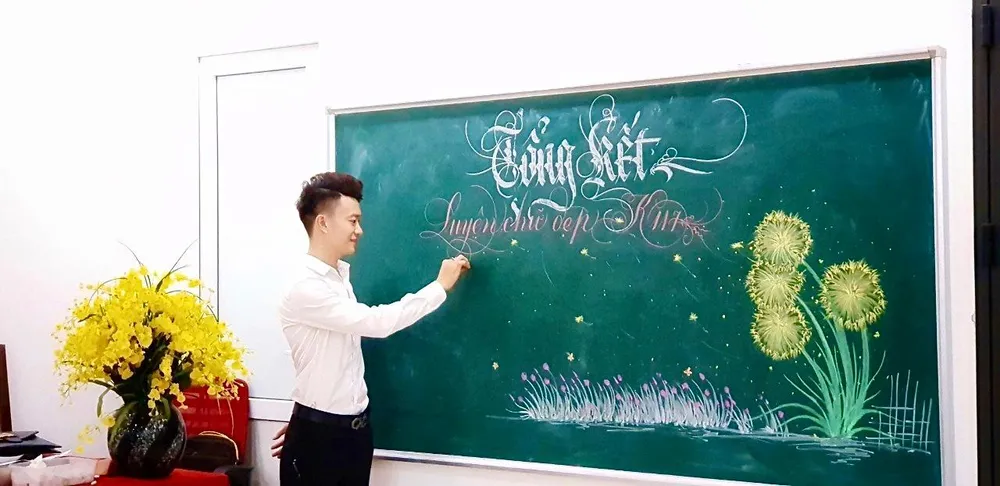 Tổng kết
Luyện chữ đẹp K117